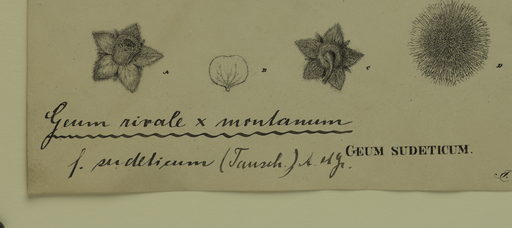 A B C D
Geum rivale x montanum
f. sudeticum (Tausch.) A. et Gr.
GEUM SUDETICUM.